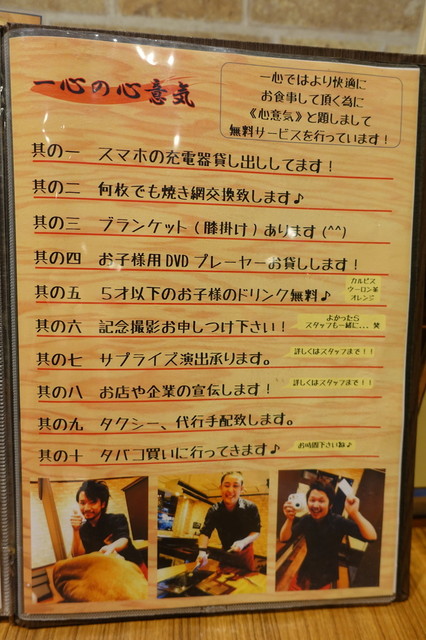 一心の心意気
一心ではより快適に
お食事して頂く為に
《心意気》と題しまして
無料サービスを行っています！
其の一 スマホの充電器貸し出ししてます！
其の二 何枚でも焼き網交換致します♪
其の三 ブランケット(膝掛け)あります(^^)
其の四 お子様用DVDプレーヤーお貸しします！
其の五 5才以下のお子様のドリンク無料♪
カルピス
ウーロン茶
オレンジ
其の六 記念撮影お申しつけ下さい！
よかったら
スタッフも一緒に...笑
其の七 サプライズ演出承ります。
詳しくはスタッフまで！！
其の八 お店や企業の宣伝します！
詳しくはスタッフまで！！
其の九 タクシー、代行手配致します。
其の十 タバコ買いに行ってきます♪
お時間下さいね♪